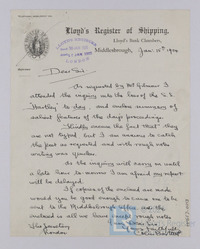 Lloyd's Register of Shipping,
Lloyd's Bank Chambers,
Middlesbrough, Jan. 10th 1900
Dear Sir
As requested by Mr
attended the inquiry into the loss of the S.S.
"Hartley" to day, and enclose summary of
salient features of the day's proceedings.
Kindly excuse the fact that they
are not typed but I am anxious to catch
the post as requested and with rough notes
writing was quicker.
As the inquiry will carry on until
a late hour to-morrow I am afraid my report
will be delayed.
If copies of the enclosed are made
would you be good enough to cause one to be
sent to the Middlesbrough office as the
enclosed is all we have except rough notes
The Secretary
London